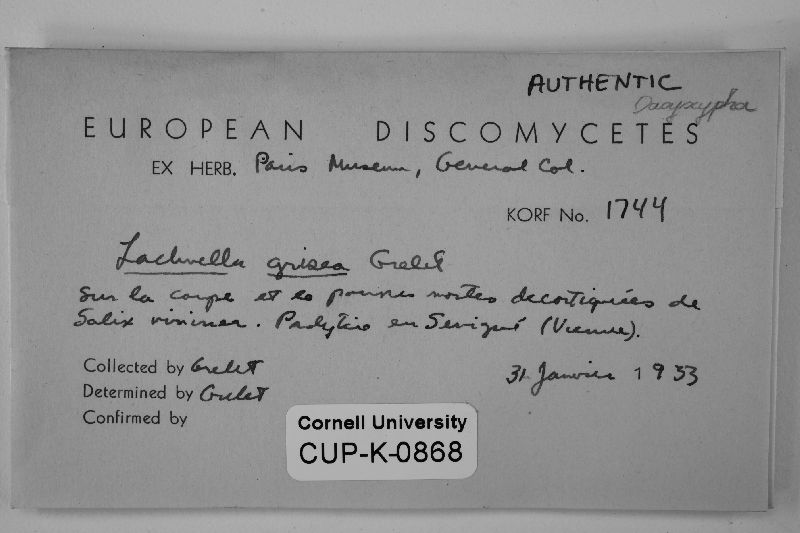 AUTHENTIC
EUROPEAN DISCOMYCETES
EX HERB. Paris Museum, General Col.
KORF No. 1744
Lachnella grisea Grelet
Sur la coupe et les mortes decortiquées de
Salix viminea. en Savigné (Vienne).
Collected by Grelet
31 Janvier 1933
Determined by Grelet
Confirmed by
Cornell University
CUP-K-0868